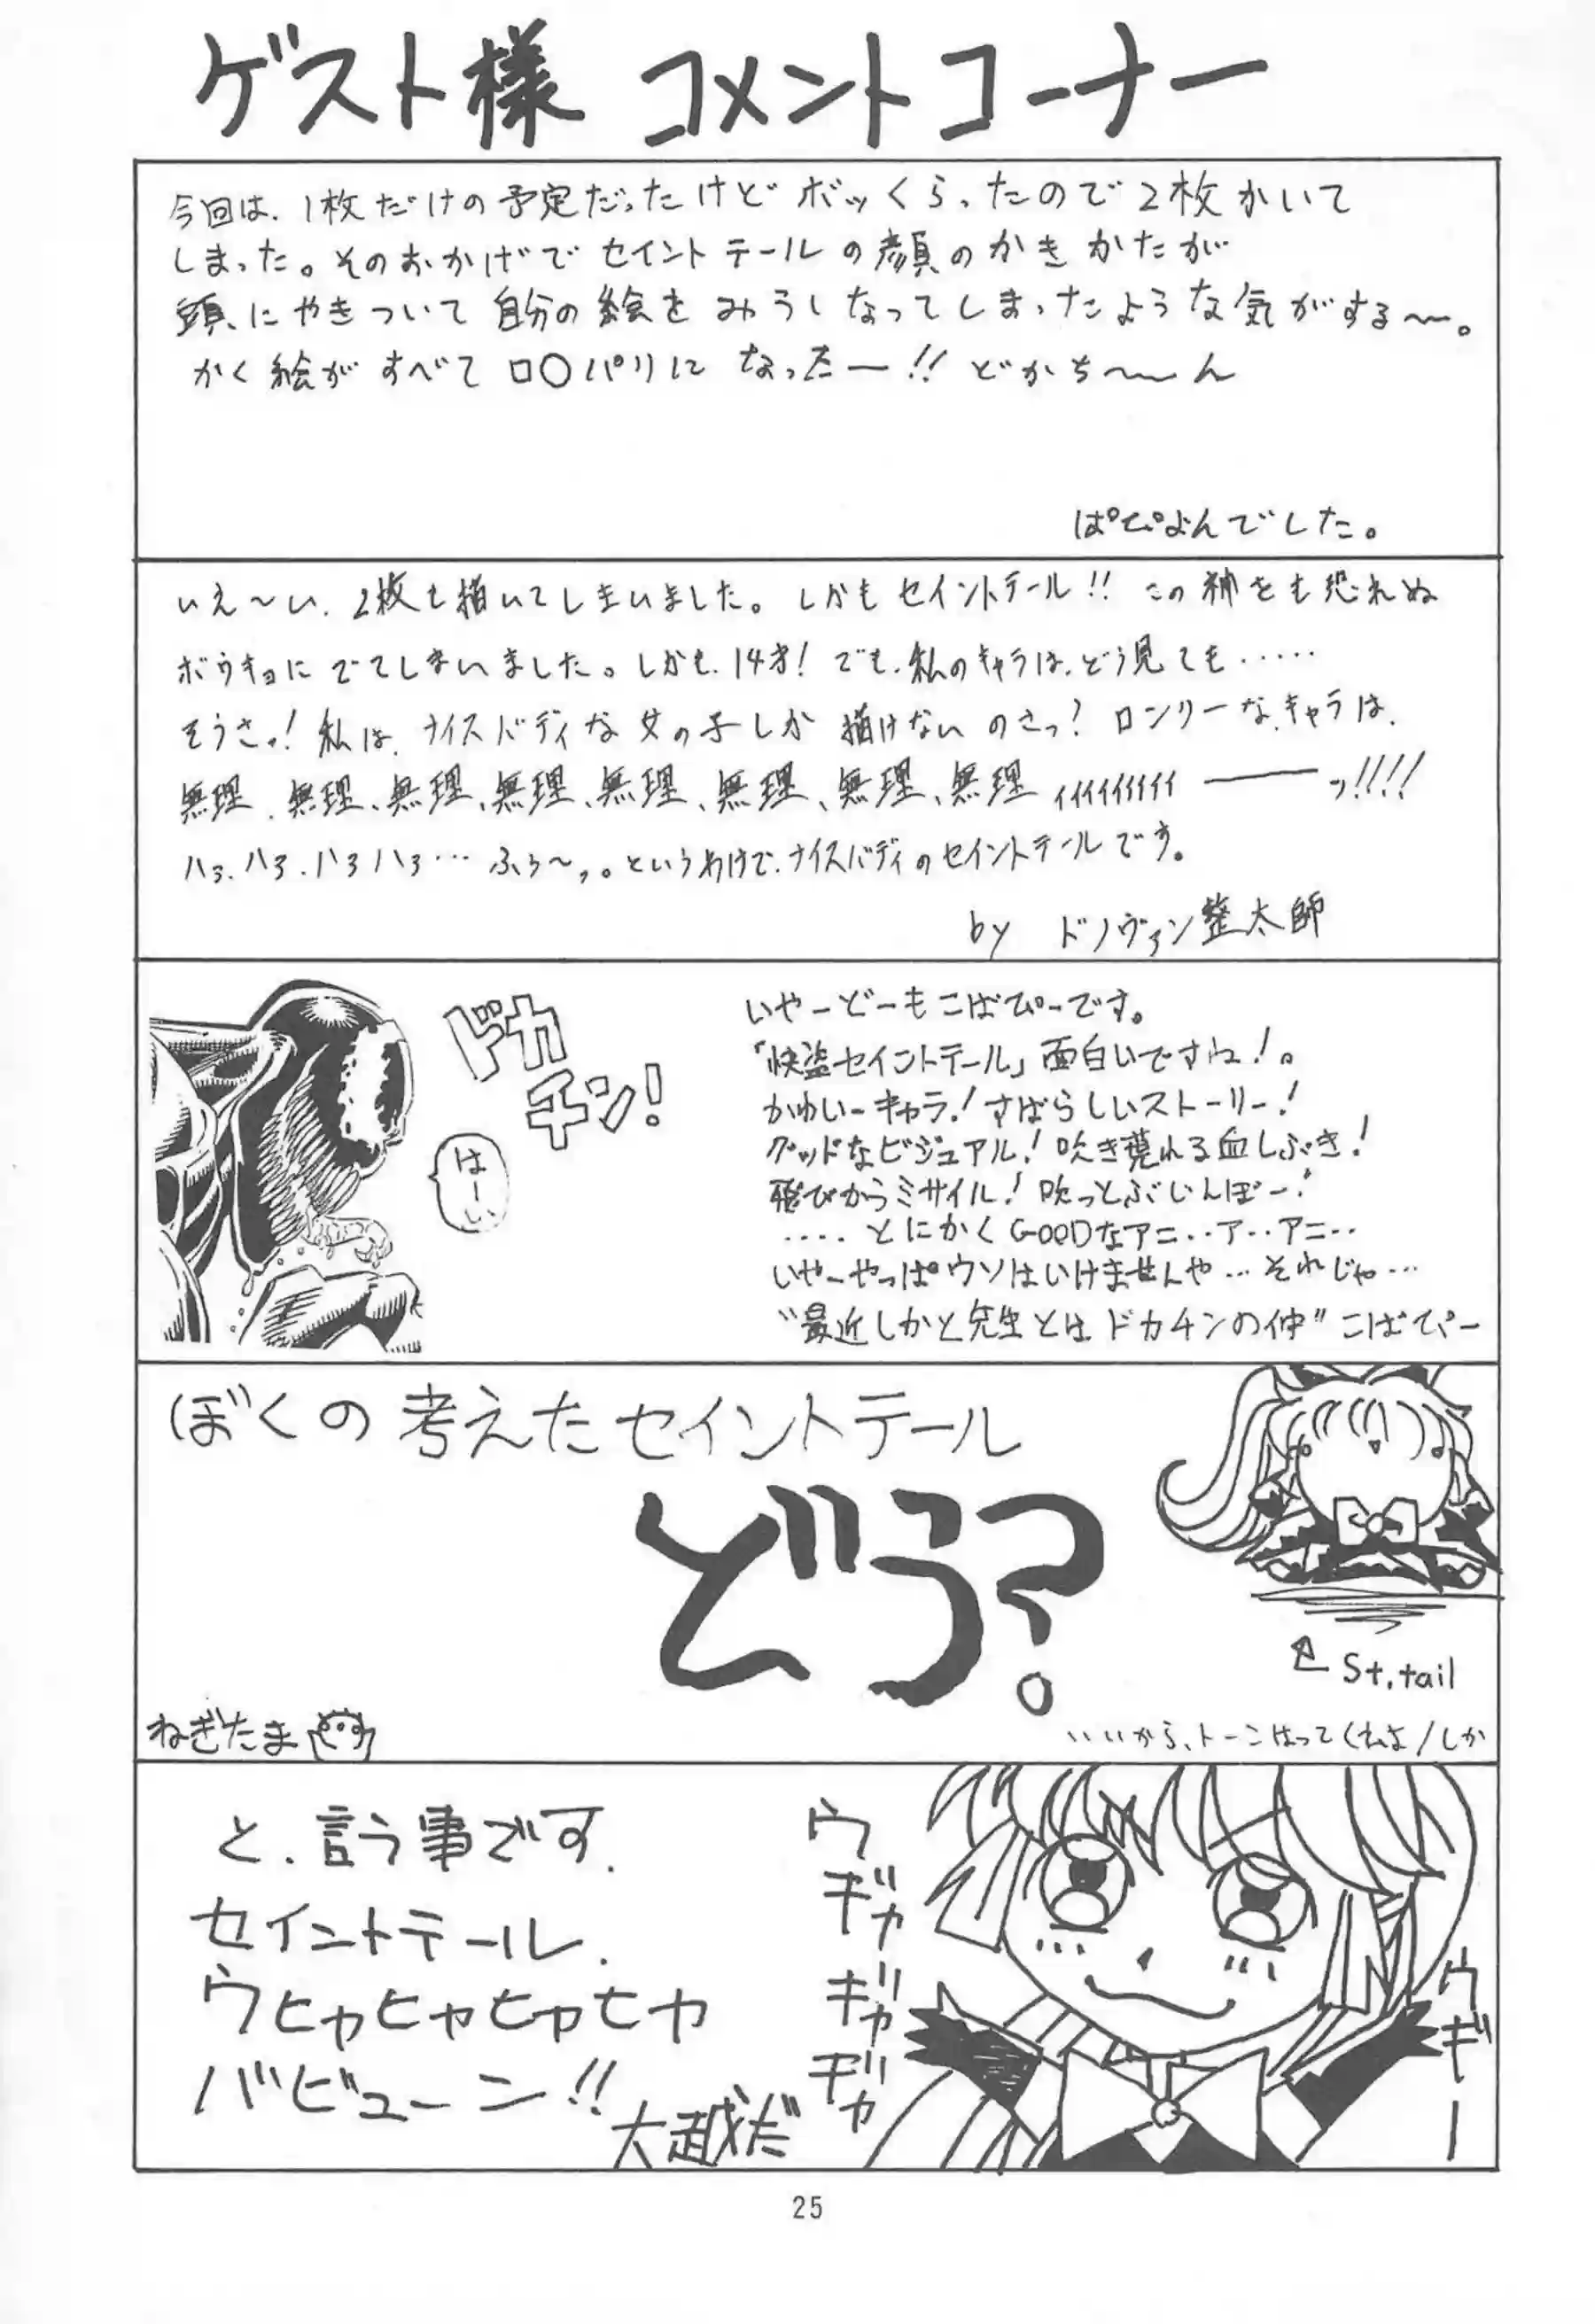 ゲスト様 コメントコーナー
今回は、1枚だけの予定だったけどボックらったので2枚かいて
しまった。そのおかげでセイントテールの顔のかきかたが
頭にやきついて自分の絵をみうしなってしまったような気がする〜。
かく絵がすべてロ〇パリになったー!!どかち〜〜ん
ぱぴよんでした。
いえ〜い、2枚も描いてしまいました。しかもセイントテール!!この神をも恐れぬ
ボウキョにでてしまいました。しかも、14才!でも、私のキャラは、どう見ても・・・・・
そうさっ!私は、ナイスバディな女の子しか描けないのさっ?ロンリーな、キャラは、
無理、無理、無理、無理、無理、無理、無理、無理ィィィィィィィィ――ッ!!!!
ハァ、ハァ、ハァハァ…ふぅ〜っ。というわけで、ナイスバディのセイントテールです。
by ドノヴァン整太師
ドカ
チン!
はーい
いやーどーもこばぴーです。
「快盗セイントテール」面白いですね!。
かわいーキャラ!すばらしいストーリー!
グッドなビジュアル!吹き荒れる血しぶき!
飛びかうミサイル!吹っとぶじんぼー!
・・・・とにかくGOODなアニ・・ア・・アニ・・
いやーやっぱウソはいけませんや…それじゃ…
"最近しかと先生とはドカチンの仲"こばぴー
ぼくの考えたセイントテール
どう?
St.tail
ねぎたま
いいから、トーンはってくれよ/しか
と、言う事です.
セイントテール.
ウヒャヒャヒャヒャ
バビューン!!
大越だ
ウギャギャギャ
ウギー
25